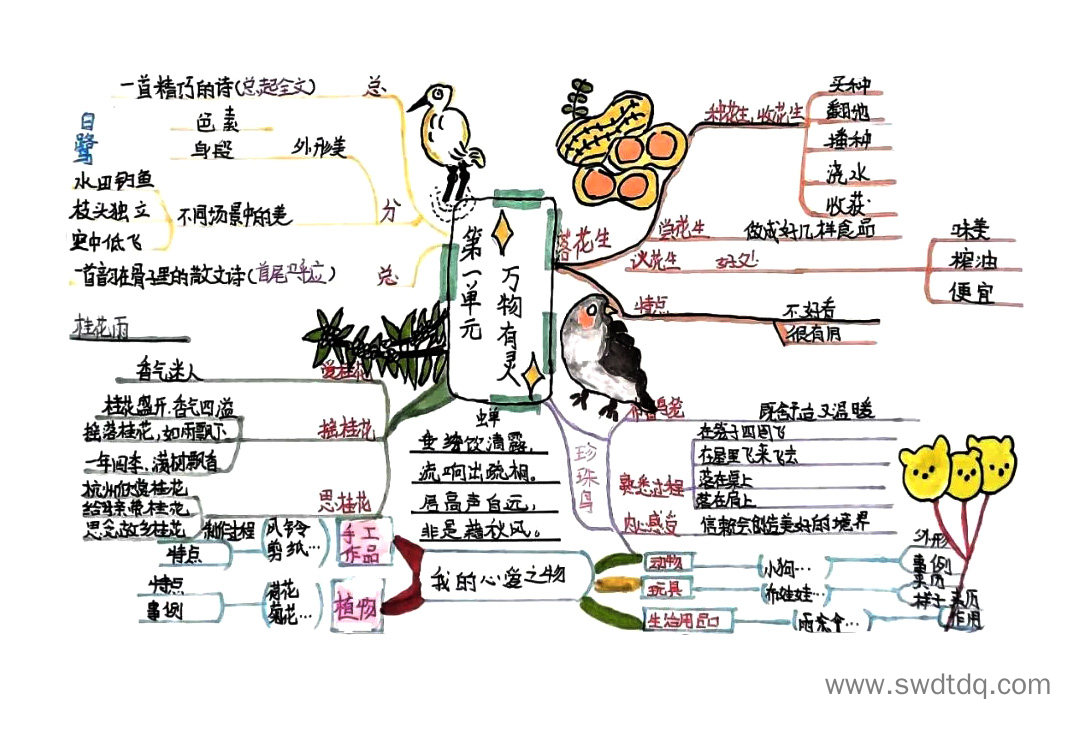 一首精巧的诗(总起全文)
总
白鹭
色素
身段
外形美
水田钓鱼
枝头独立
空中低飞
不同场景中的美
分
一首韵在骨子里的散文诗(首尾呼应)
总
第一单元
万物有灵
落花生
种花生,收花生
买种
翻地
播种
浇水
收获
尝花生
做成好几样食品
议花生
好处
味美
榨油
便宜
特点
不好看
很有用
桂花雨
爱桂花
香气迷人
摇桂花
桂花盛开,香气四溢
摇落桂花,如雨飘下
一年四季,满树飘香
思桂花
杭州
给母亲带桂花
思念故乡桂花
蝉
垂緌饮清露,
流响出疏桐。
居高声自远,
非是藉秋风。
珍珠鸟
既舒适又温暖
在笼子四周飞
在屋里飞来飞去
落在桌上
落在肩上
熟悉过程
内心感受
信赖会创造美好的境界
我的心爱之物
手工作品
风铃
剪纸…
制作过程
特点
植物
荷花
菊花…
特点
事例
动物
小狗…
外形
事例
来历
玩具
布娃娃…
样子
来历
生活用品
雨伞
作用
www.swdtdq.com